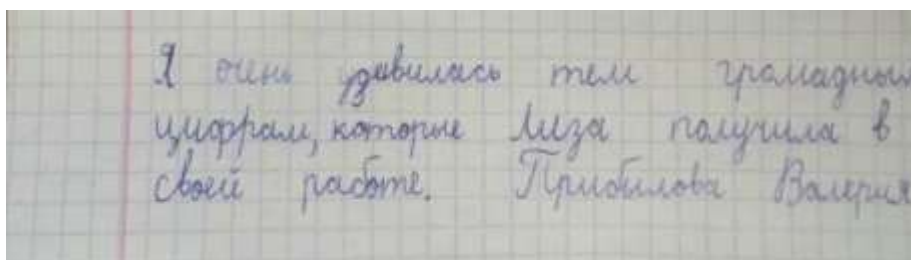 Я очень удивилась тем громадным
цифрам, которые Лиза получила в
своей работе. Прибылова Валерия